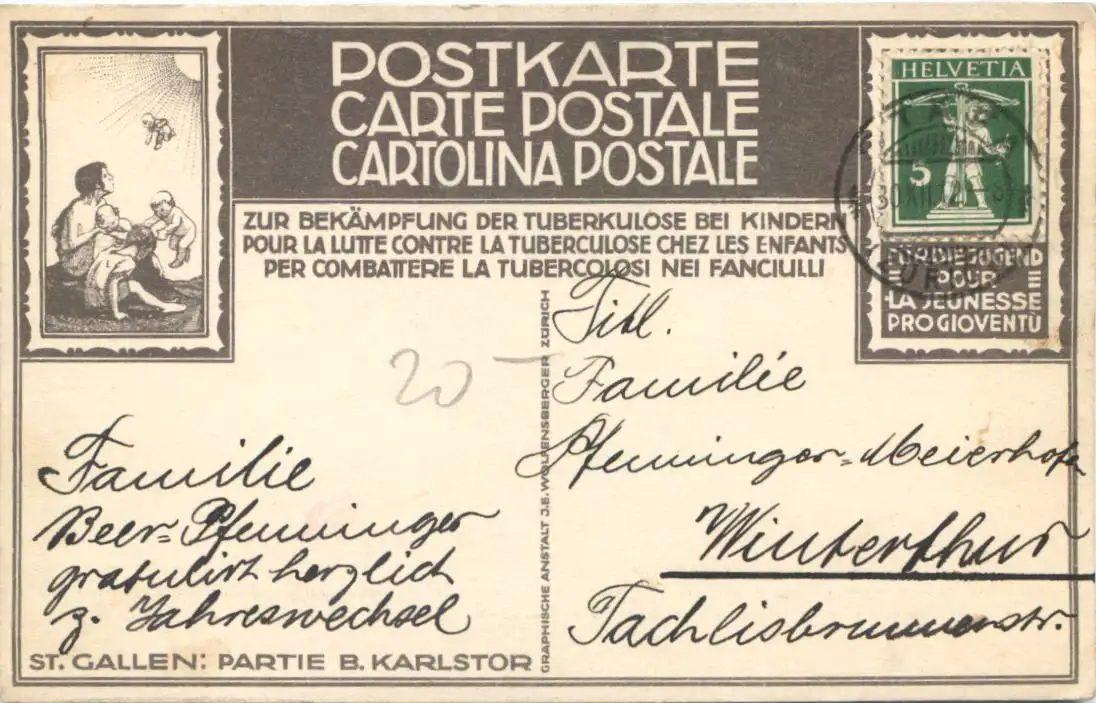 POSTKARTE
CARTE POSTALE
CARTOLINA POSTALE
ZUR BEKÄMPFUNG DER TUBERKULOSE BEI KINDERN
POUR LA LUTTE CONTRE LA TUBERCULOSE CHEZ LES ENFANTS
PER COMBATTERE LA TUBERCOLOSI NEI FANCIULLI
HELVETIA
5
FÜR DIE JUGEND
POUR
LA JEUNESSE
PRO GIOVENTÙ
20-
Familie
Beer=Pfenninger
gratulirt herzlich
z. Jahreswechsel
ST. GALLEN: PARTIE B. KARLSTOR
GRAPHISCHE ANSTALT J.E. WOLFENSBERGER ZÜRICH
Titl.
Familie
Pfenninger=Meierhofer
Winterthur
Tachlisbrunnenstr.